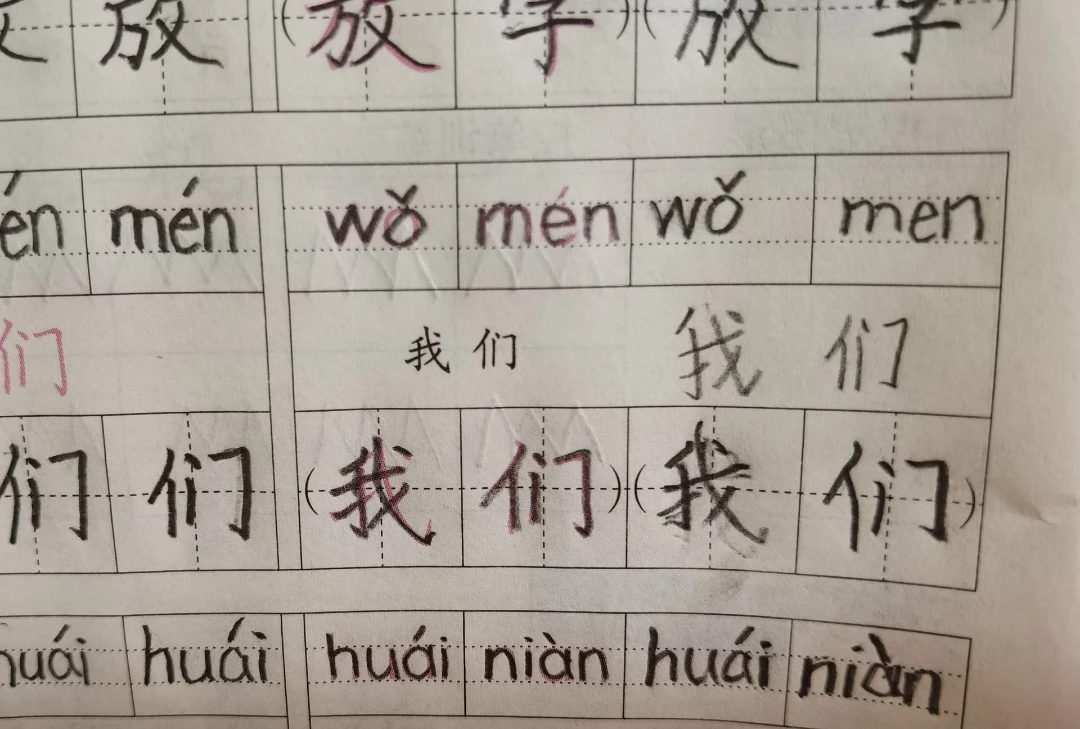 放 (放 学) (放 学)
én mén wǒ mén wǒ men
们 我 们 我 们
们 们 (我 们) (我 们)
huái huái huái niàn huái niàn